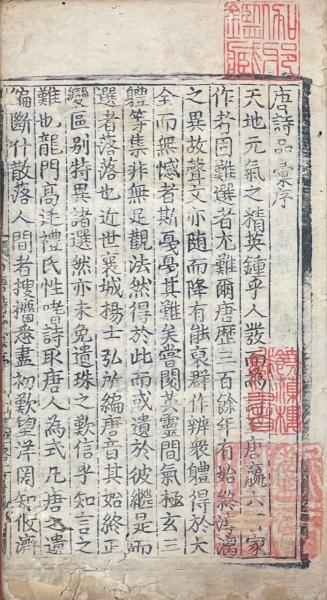 唐詩品彙序
天地元氣之精英鍾乎人發而為唐六家
作者固難選者尤難爾唐歷三百餘年有始終淳漓
之異故聲文亦隨而降有能裒群作辨衆體得於大
全而無憾者斯戞戞其難矣嘗閱其靈間氣極玄三
軆等集非無足觀法然得於此而或遺於彼繼是而
選者落落也近世襄城楊士弘所編唐音其始終正
變區別特異諸選然亦未免遺珠之歎信乎知言之
難也龍門高廷禮氏性嗜詩取唐人為式凡唐之遺
編斷什散落人間者搜攟悉盡初歎望洋罔知攸濟